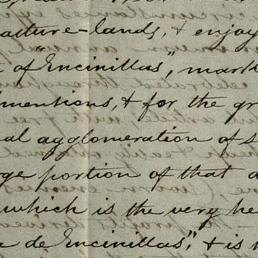 acture-lands, & enjoy
of "Encinillas", mark
imentions, & for the gr
al agglomeration of s
ge portion of that a
which is the very he
e de Encinillas", & is